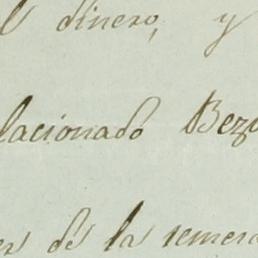 l dinero, y
lacionado Beza
es de la remera